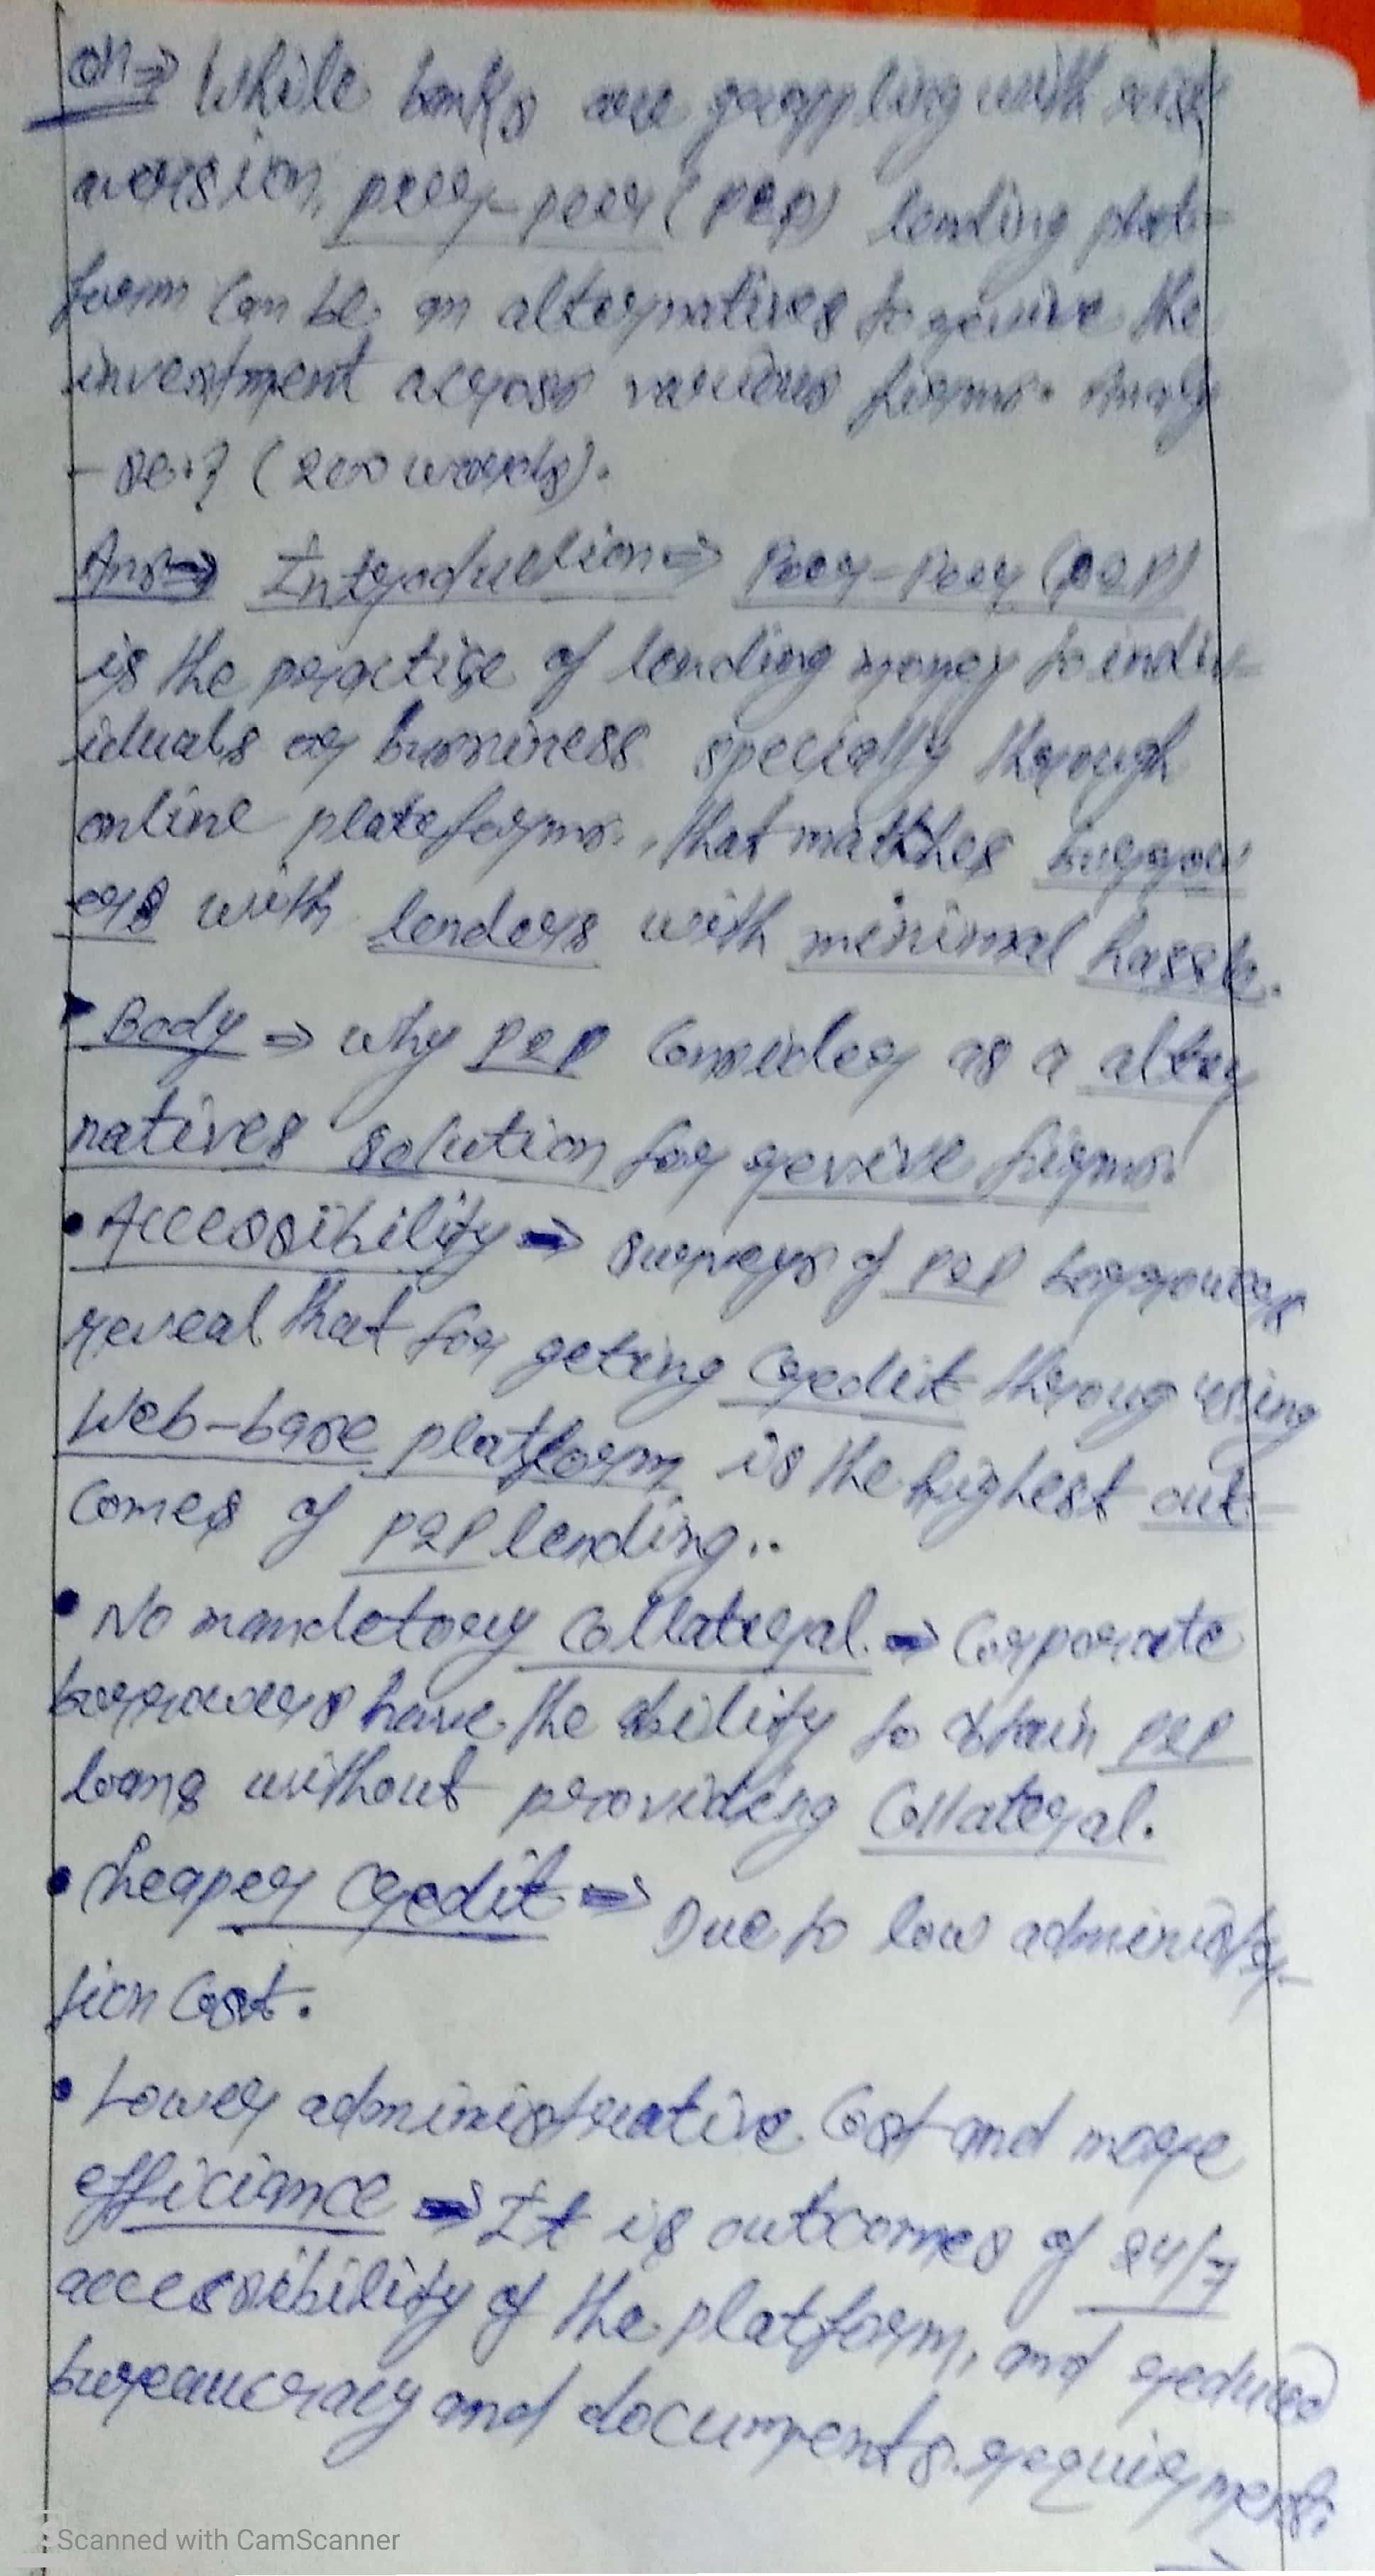 Q1⇒ While banks are grappling with risk
aversion, peer-peer (P2P) lending plat-
form can be an alternatives to revive the
investment across various firms. Analy
-se.? (200 words).
Ans⇒ Introduction⇒ Peer-Peer (P2P)
is the practice of lending money to indiv-
iduals or business specially through
online plateforms, that matches borrow
ers with lenders with minimal hassle.
Body ⇒ why P2P consider as a alter
natives solution for revive firms.
• Accessibility ⇒ surveys of P2P borrowers
reveal that for geting credit throug using
Web-base platform is the highest out-
comes of P2P lending..
• No mandetory collateral. ⇒ Corporate
borrowers have the ability to obtain P2P
loans without providing collateral.
• Cheaper credit ⇒ Due to low administra-
tion cost.
• Lower administrative cost and more
efficiance ⇒ It is outcomes of 24/7
accessibility of the platform, and reduced
bureaucracy and documents requirments.
Scanned with CamScanner